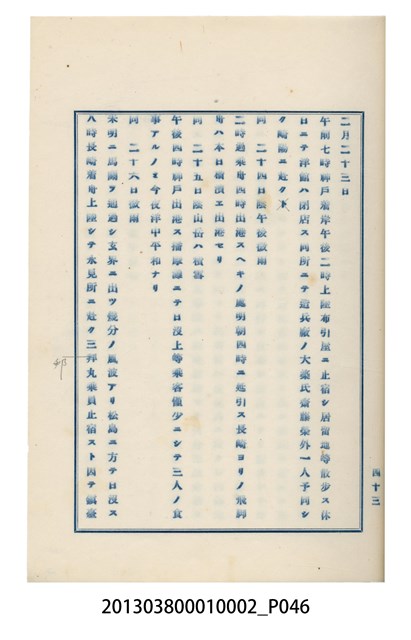 二月二十三日
午前七時神戸着岸午後二時上陸布引屋ニ止宿シ居留地等散歩ス休
日ニテ諸館ハ閉店ス同所ニテ造兵廠ノ大築氏齋藤栄外一人予同シ
ク崎陽ニ赴クト
同 二十四日陸午後微雨
二時過乗舟四時出港スヘキノ處明朝四時ニ延引ス長崎ヨリノ飛脚
舟ハ本日横濱エ出港セリ
同 二十五日陰山岳ハ積雪
午後四時神戸出港ス播摩灘ニテ日没上等乗客僅少ニシテ三人ノ食
事アルノミ今夜洋中平和ナリ
同 二十六日微雨
未明ニ馬關ヲ通過シ玄界ニ出ツ幾分ノ風波アリ松島ニ方テ日没ス
八時長崎着舟上陸シテ永見所ニ赴ク三邦丸乗員止宿スト因テ鎭臺
邦
四十三
201303800010002_P046